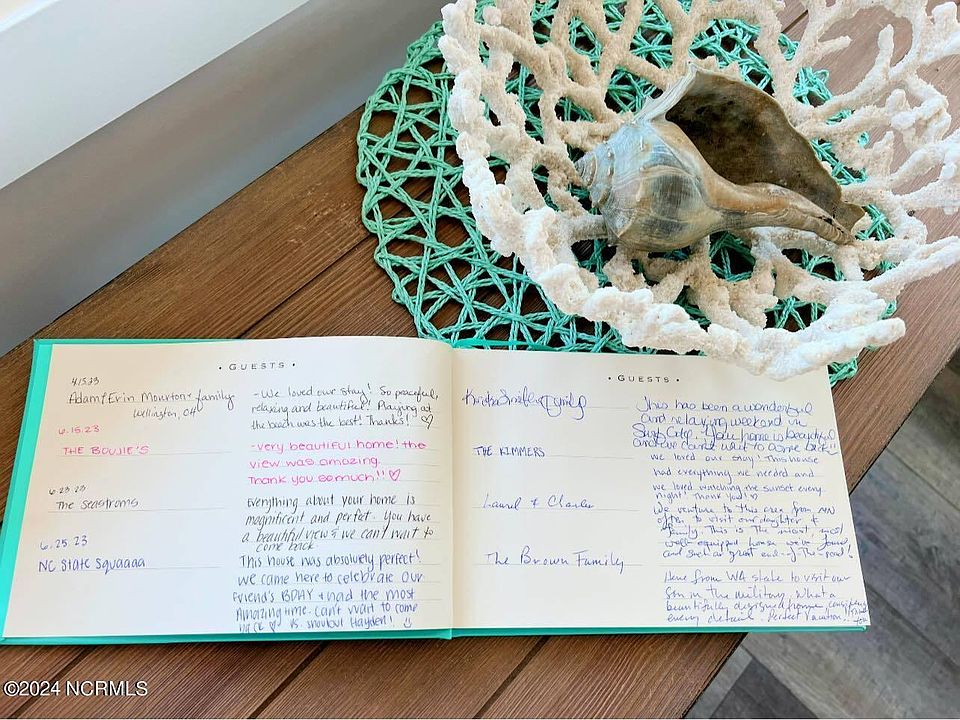 • GUESTS •
4.15.23
Adam & Erin + family
Wellington, OH
- We loved our stay! So peaceful,
relaxing and beautiful! Playing at
the beach was the best! Thanks! ♡
6.15.23
THE BOUJIE'S
-very beautiful home! the
view was amazing.
Thank you so much!! ♡
6.23.23
The Seastroms
Everything about your home is
magnificent and perfect. You have
a beautiful view & we can't wait to
come back
6.25.23
NC State Squaaaa
This house was absolutely perfect!
We came here to celebrate our
friend's BDAY & had the most
Amazing time. Can't wait to come
back ♡ Hayden!
• GUESTS •
Family
This has been a wonderful
and relaxing weekend in
Surf City. Your home is beautiful
and we can't wait to come back!
THE KIMMERS
we loved our stay! This house
had everything we needed and
we loved watching the sunset every
night! Thank you! ♡
Laurel & Charles
We venture to this area from
often to visit our daughter &
family. This is the most
well equipped house we've found
and such a great end-of-the road!
The Brown Family
Here from WA state to visit our
son in the military. What a
beautifully designed home
every detail. Perfect vacation!
©2024 NCRMLS